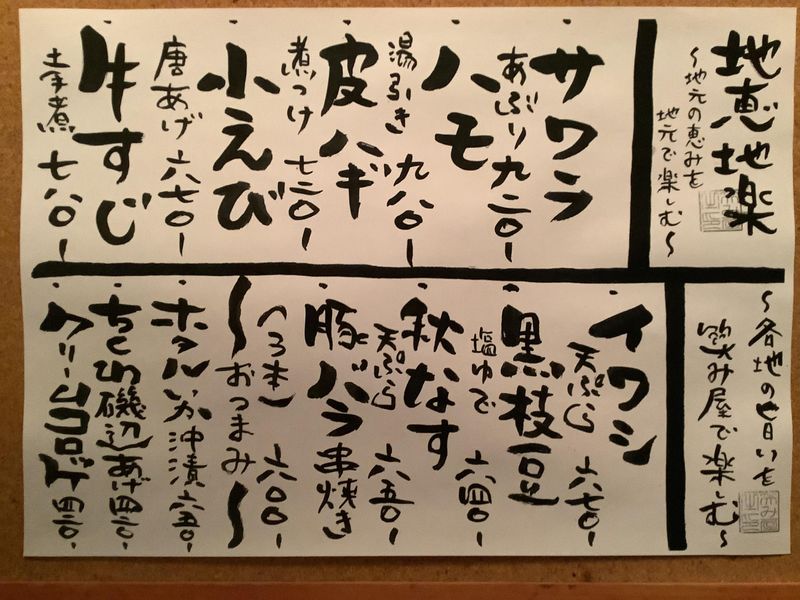 地恵地楽
〜地元の恵みを
地元で楽しむ〜
・サワラ
あぶり 九二〇ー
・ハモ
湯引き 九八〇ー
・皮ハギ
煮つけ 七二〇ー
・小えび
唐あげ 六七〇ー
・牛すじ
土手煮 七八〇ー
〜各地の旨いを
呑み屋で楽しむ〜
・イワシ
天ぷら 六七〇ー
・黒枝豆
塩ゆで 六四〇ー
・秋なす
天ぷら 六五〇ー
・豚バラ串焼き
(3本) 六〇〇ー
〜おつまみ〜
・ホタルイカ沖漬 六五〇-
・ちくわ磯辺あげ 四三〇-
・クリームコロッケ 四三〇-